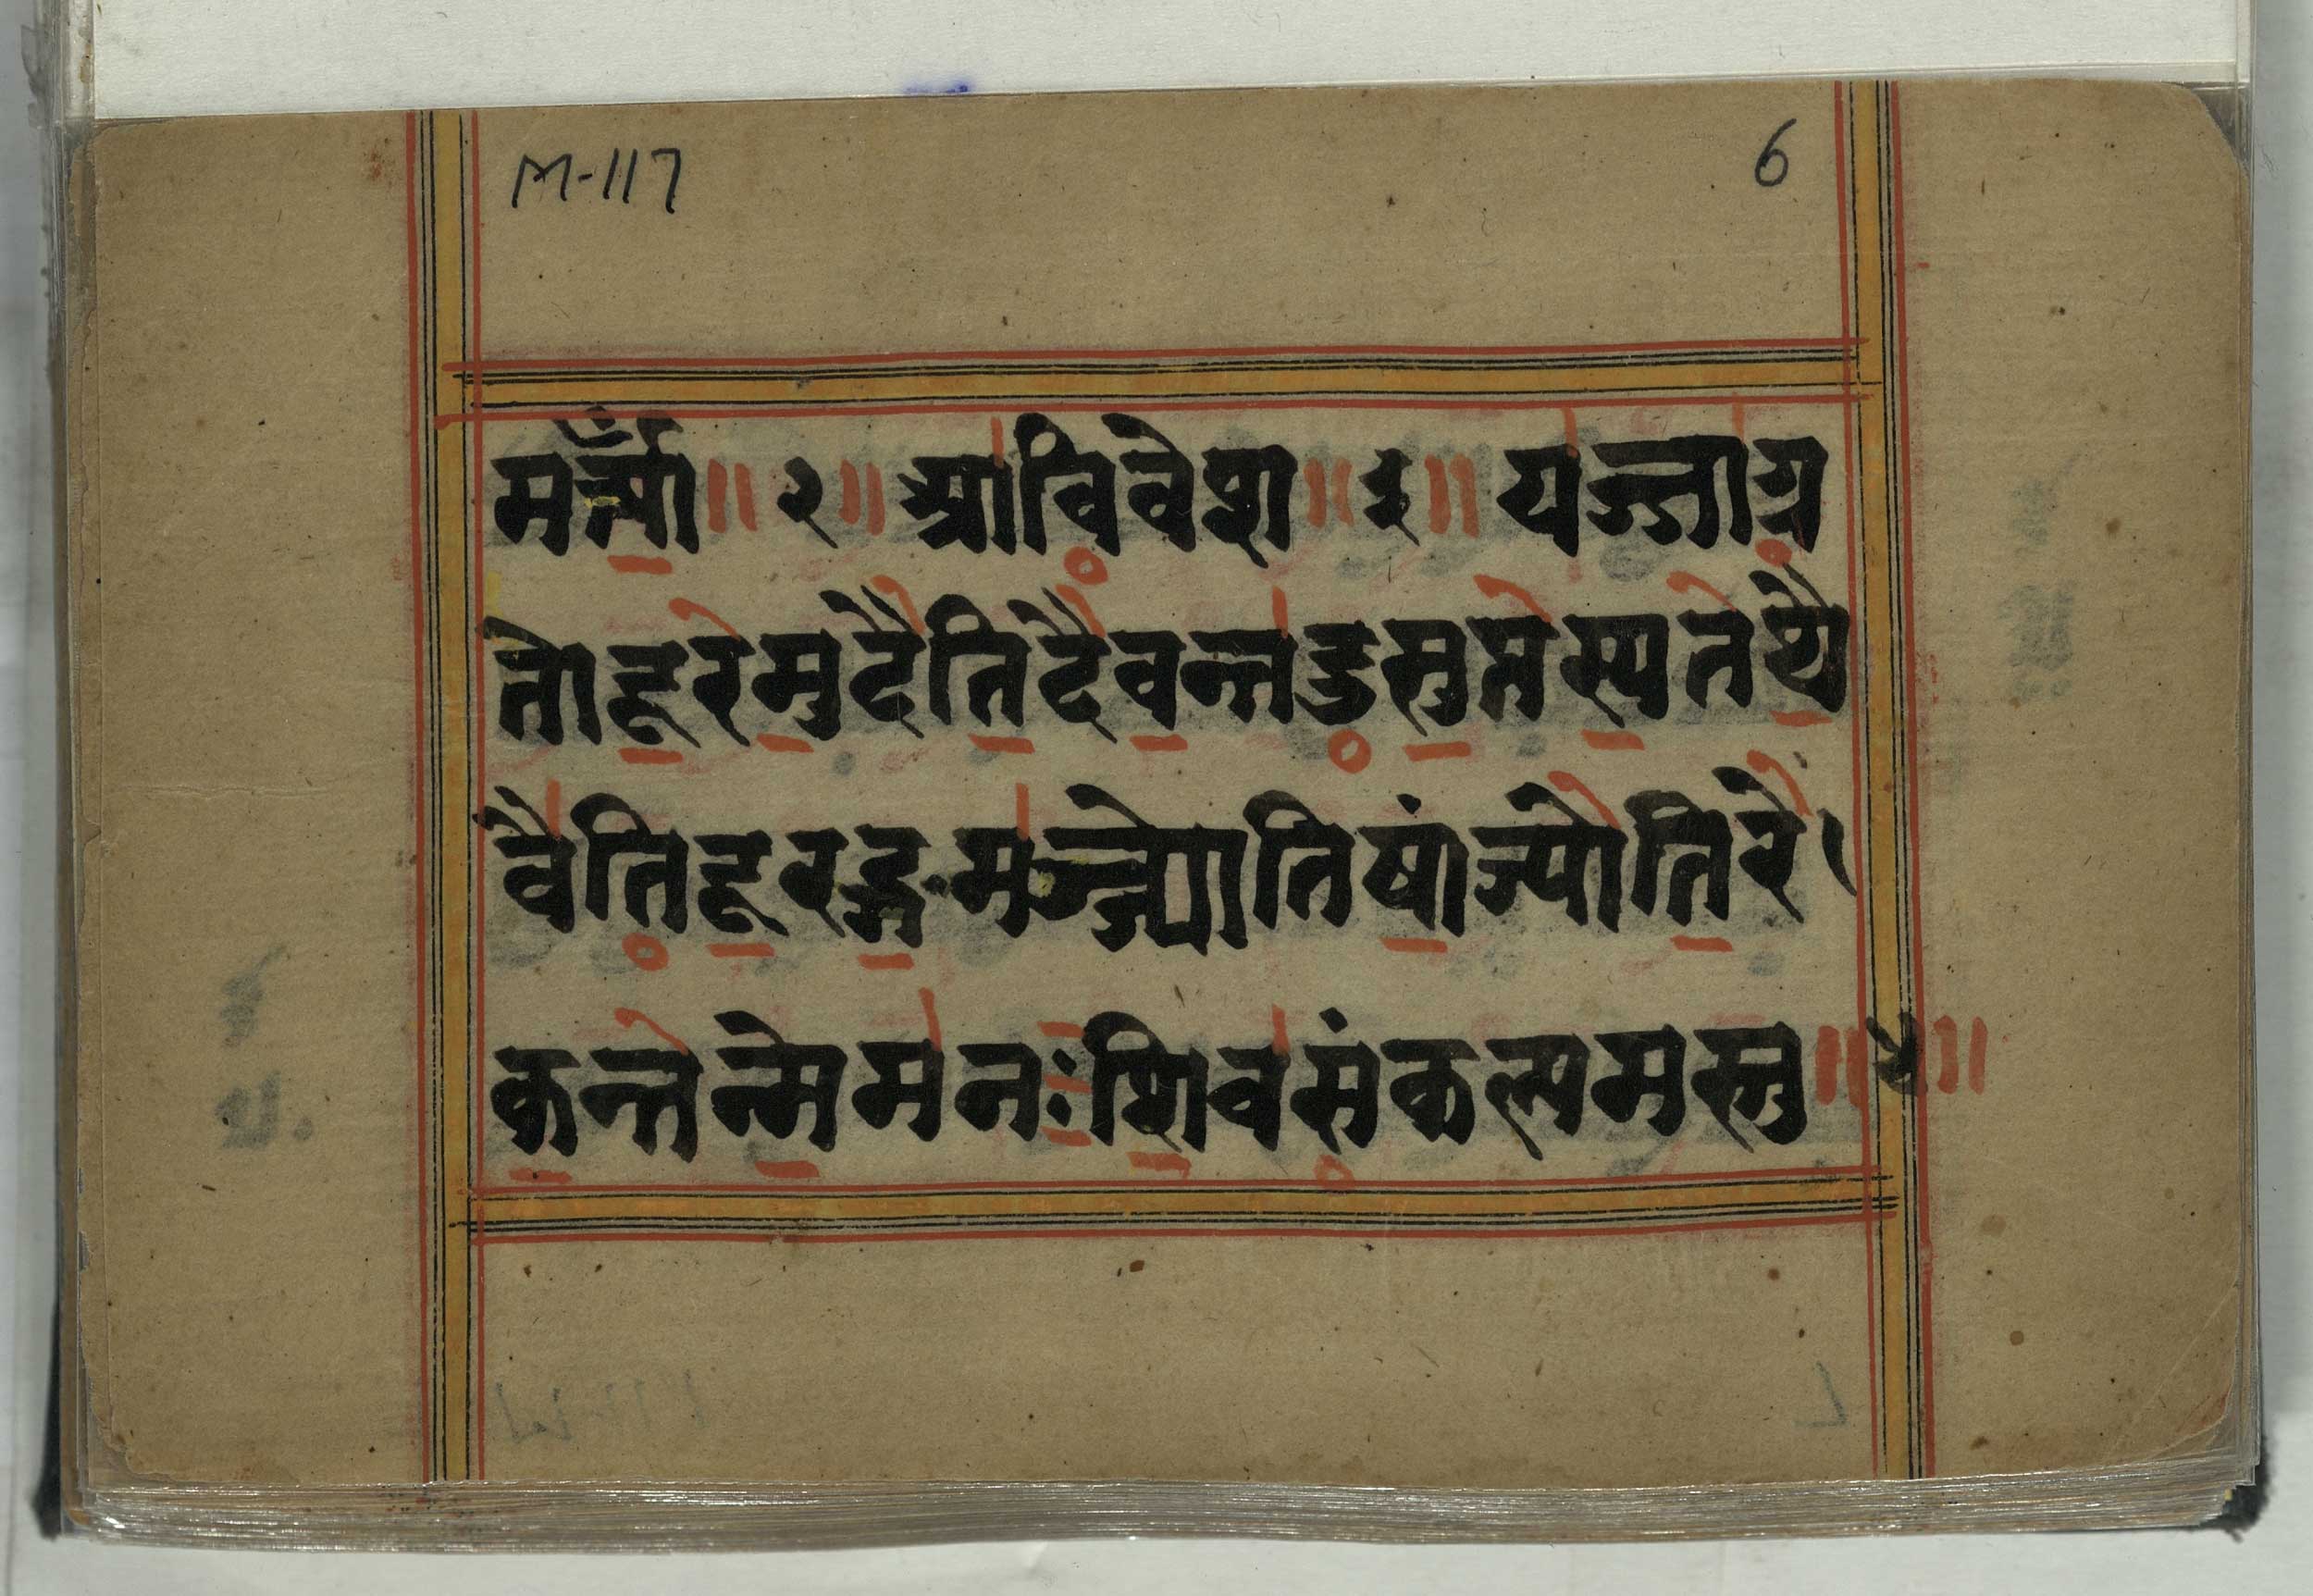 M-117 6
मर्त्याँ ॥ २ ॥ आविवेश ॥ ३ ॥ यज्जाग्र
तो दूरमुदैति दैवन्तदुसुप्तस्य तथै
वैति दूरङ्गमञ्ज्योतिषां ज्योतिरे
कन्तन्मे मनः शिवसंकल्पमस्तु ॥ ४ ॥